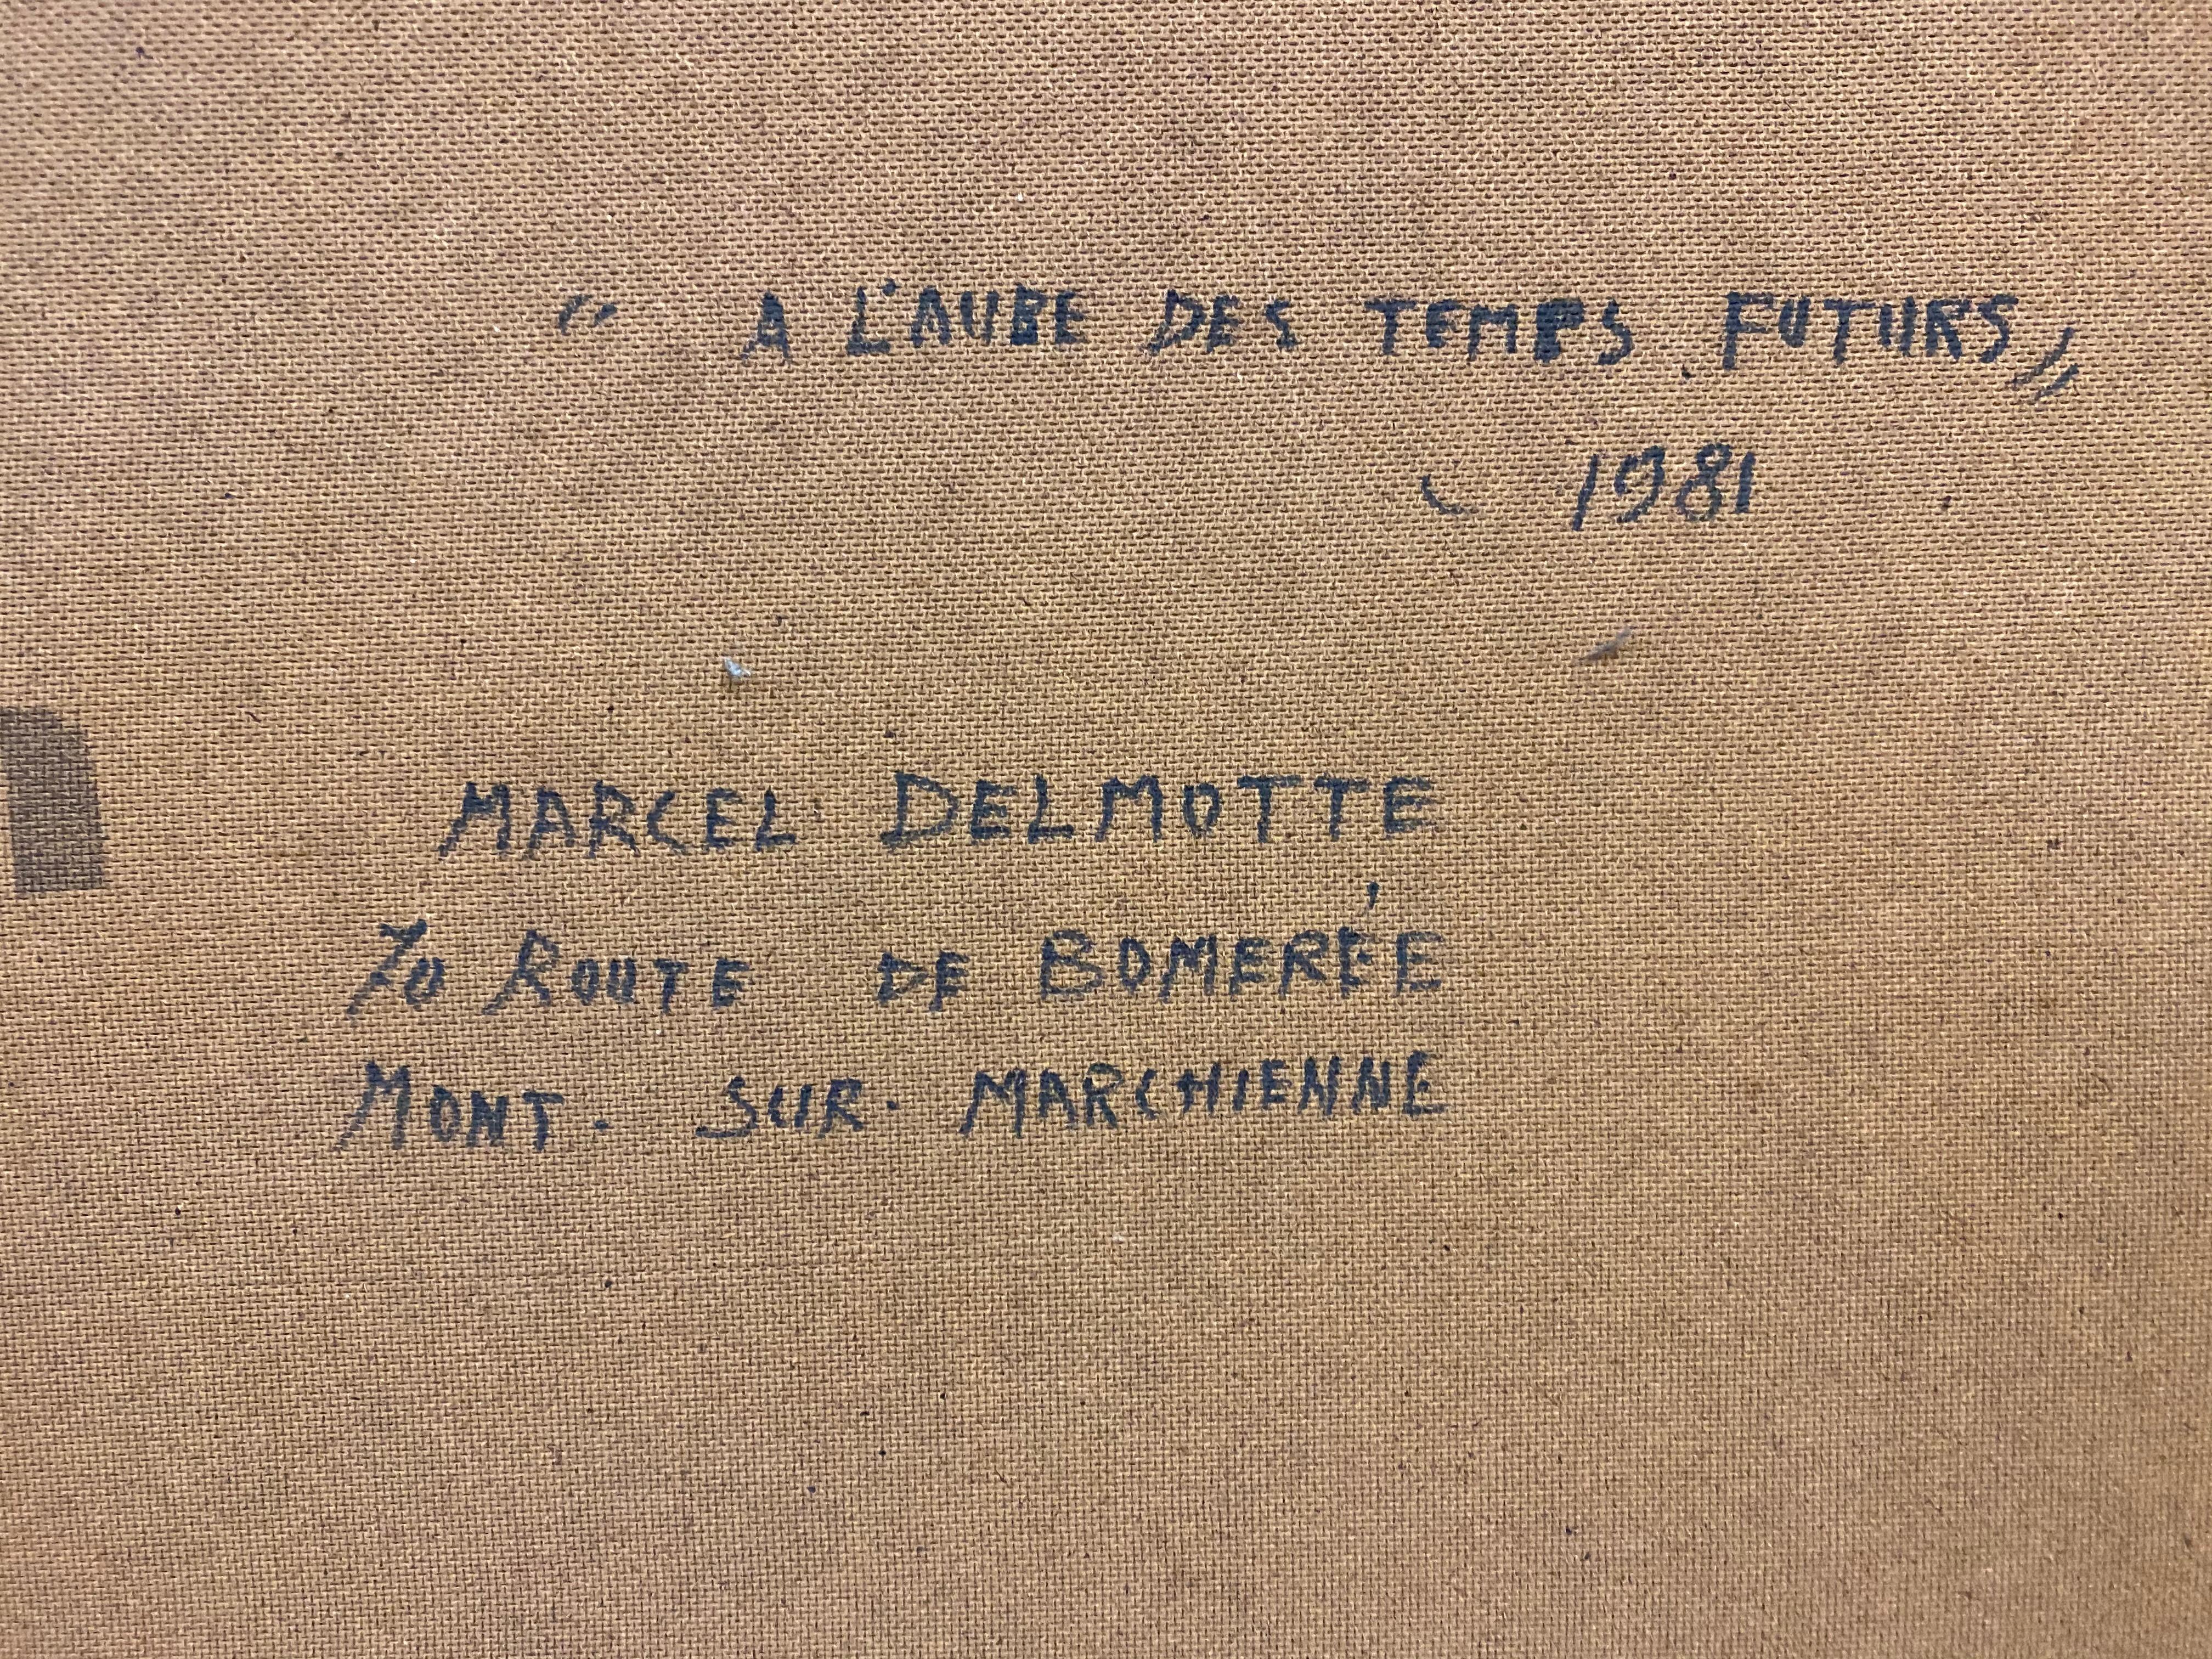 " A L'AUBE DES TEMPS FUTURS "
1981
MARCEL DELMOTTE
70 ROUTE DE BOMERÉE
MONT. SUR. MARCHIENNE